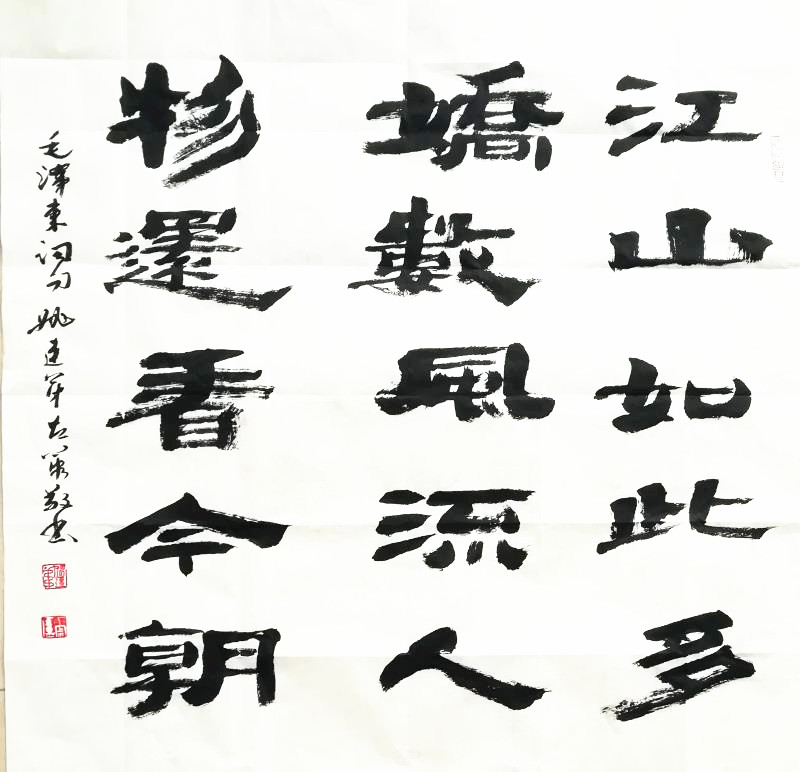 江山如此多
嬌數風流人
物還看今朝
毛澤東詞句 姚建軍左筆敬書